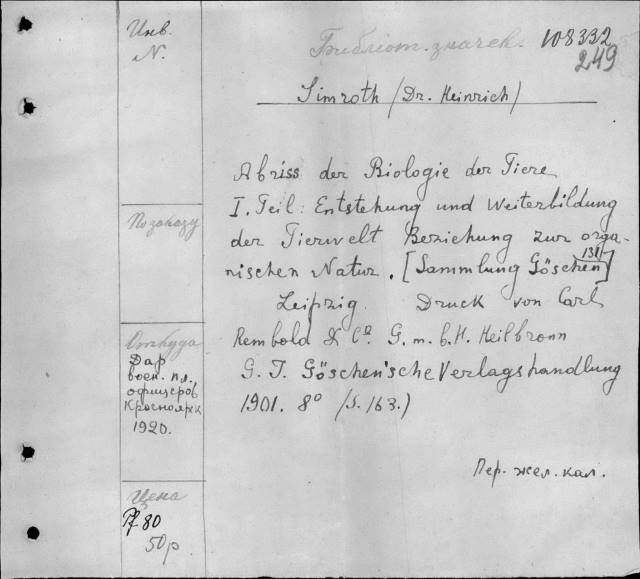 Инв.
N.
Библіот. значек. 108332
249
Simroth /Dr. Heinrich/
Abriss der Biologie der Tiere
I. Teil: Entstehung und Weiterbildung
der Tierwelt Beziehung zur orga-
nischen Natur. [Sammlung Göschen 131]
Leipzig. Druck von Carl
Rembold & Cº G. m. b. H. Heilbronn
G. J. Göschen'sche Verlagshandlung
1901. 8º /S. 163.)
Пер. жел. кал.
По заказу
Откуда
Дар
воен. пл.
офицеров
Красноярск
1920.
Цена
Pf 80
50 р.